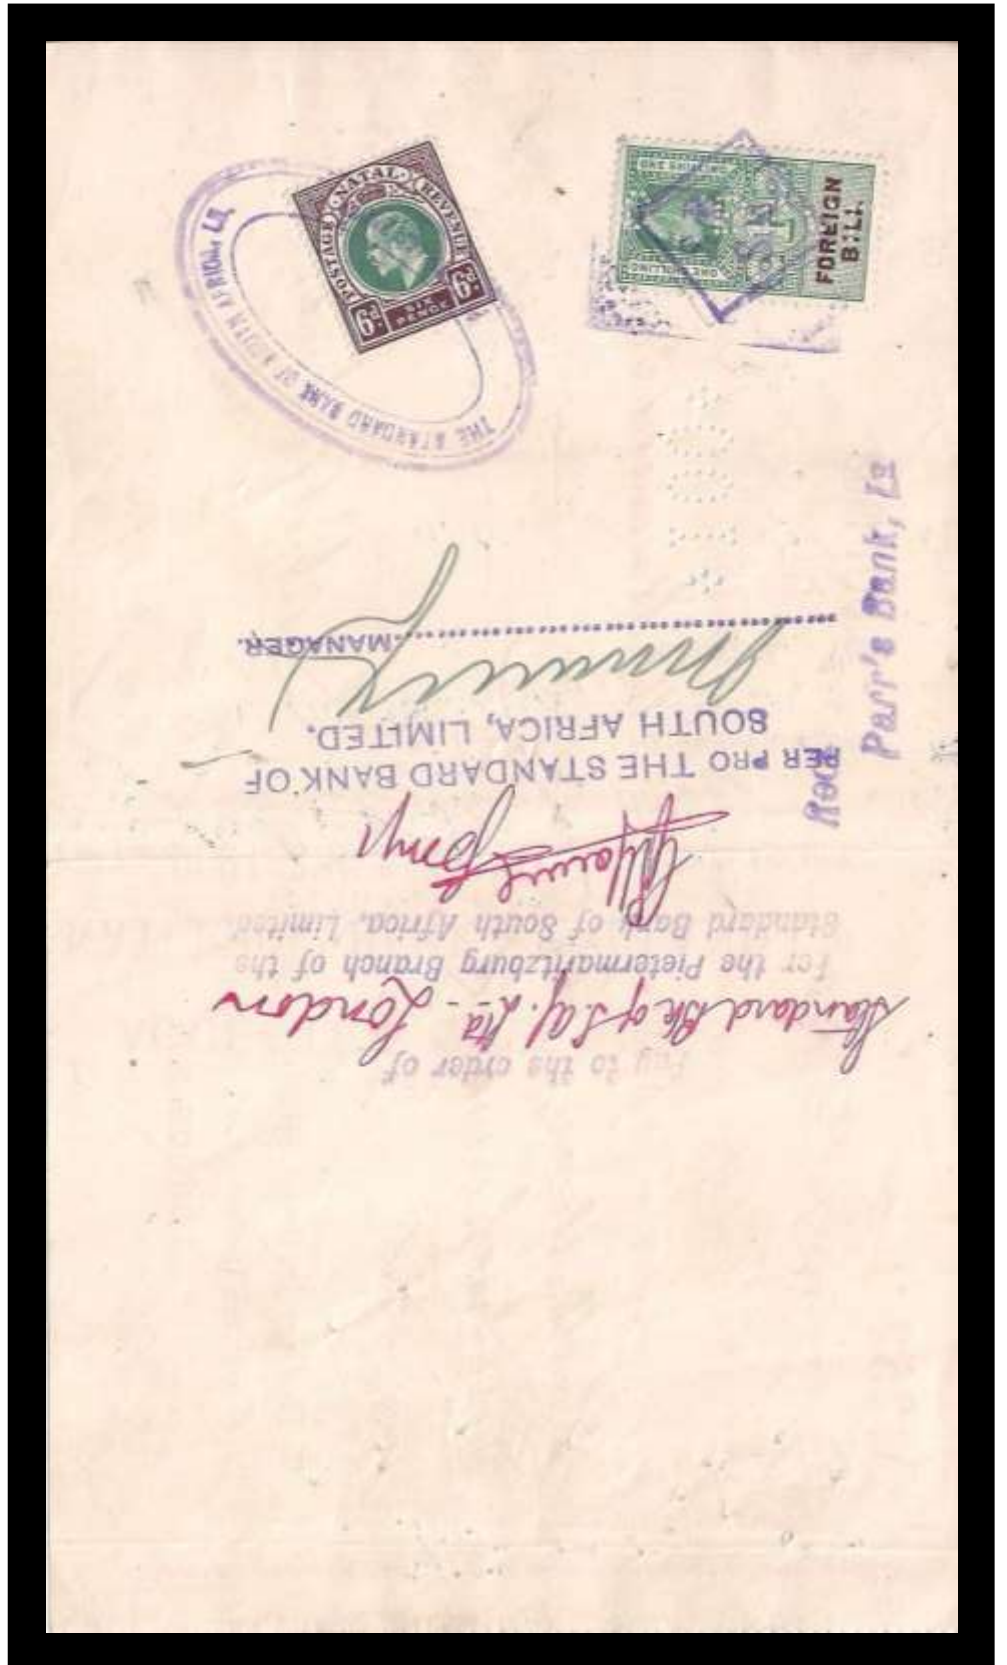 POSTAGE NATAL REVENUE
6d. SIX PENCE 6d.
THE STANDARD BANK OF SOUTH AFRICA Ld
ONE SHILLING
FOREIGN
BILL
ONE SHILLING
Parr's Bank, Ld
Pay to the order of
Standard Bk of S. Af. Ltd - London
For the Pietermaritzburg Branch of the
Standard Bank of South Africa, Limited.
PER PRO THE STANDARD BANK OF
SOUTH AFRICA, LIMITED.
MANAGER.